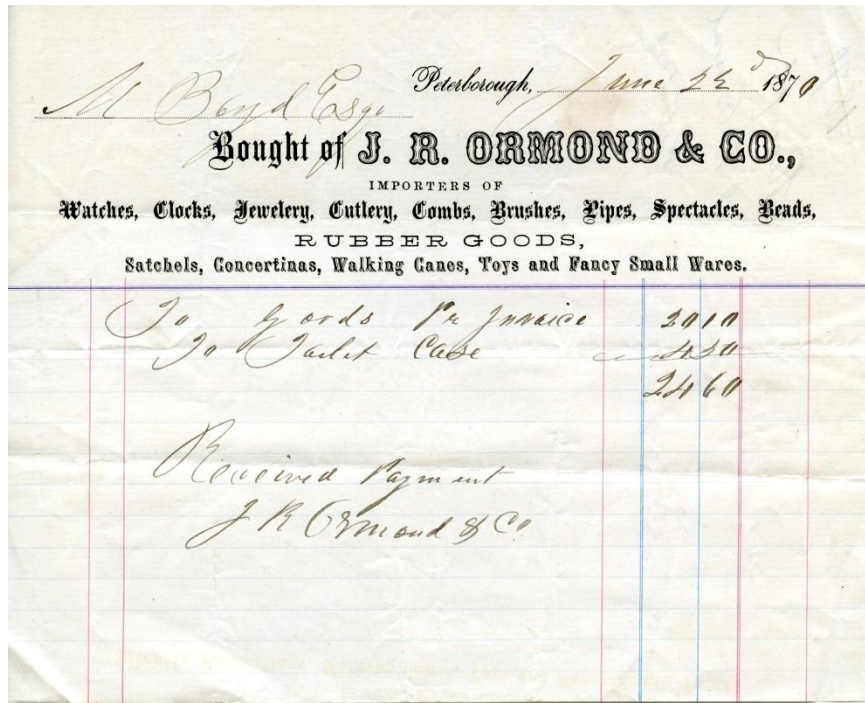 Peterborough, June 22d 1870
M Boyd Esqr
Bought of J. R. ORMOND & CO.,
IMPORTERS OF
Watches, Clocks, Jewelery, Cutlery, Combs, Brushes, Pipes, Spectacles, Beads,
RUBBER GOODS,
Satchels, Concertinas, Walking Canes, Toys and Fancy Small Wares.
To Goods Pr Invoice 20 10
To Toilet Case 4 50
24 60
Received Payment
J R Ormond & Co